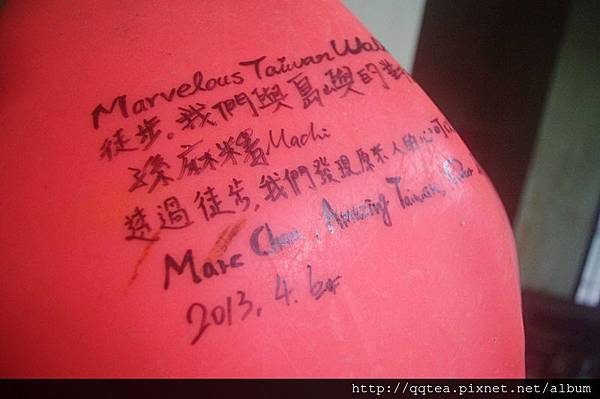 Marvelous Taiwan Wal
徒步。我們與島嶼的對
麻糬 Machi
透過徒步,我們發現原來人的心可
Marc Chen, Amazing Taiwan,
2013. 4.
http://qqtea.pixnet.net/album